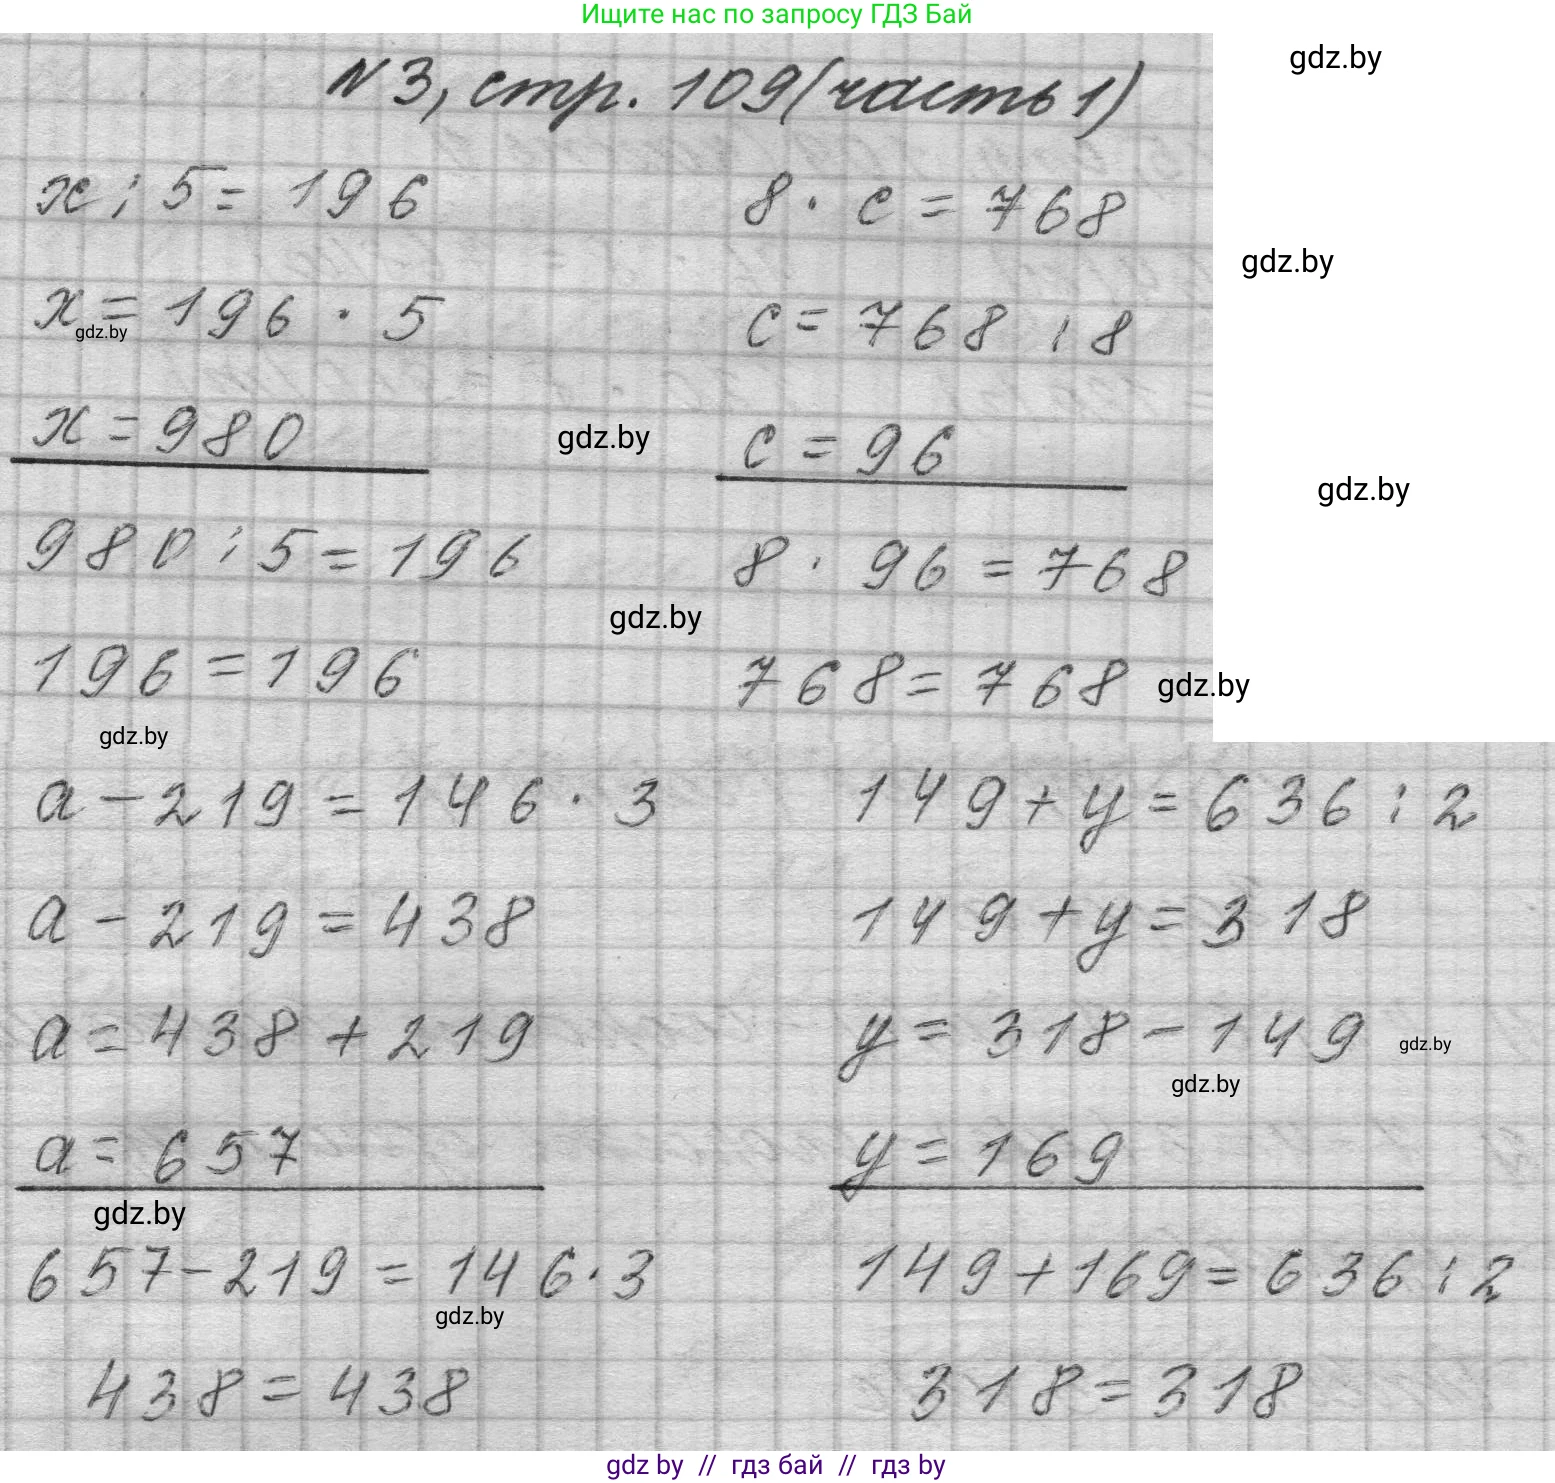 Ищите нас по запросу ГДЗ Бай
gdz.by
№3, стр. 109 (часть 1)
x : 5 = 196
8 · c = 768
gdz.by
x = 196 · 5
c = 768 : 8
gdz.by
x = 980
gdz.by
c = 96
gdz.by
980 : 5 = 196
8 · 96 = 768
gdz.by
196 = 196
768 = 768
gdz.by
gdz.by
a - 219 = 146 · 3
149 + y = 636 : 2
a - 219 = 438
149 + y = 318
a = 438 + 219
y = 318 - 149
gdz.by
gdz.by
a = 657
y = 169
gdz.by
657 - 219 = 146 · 3
149 + 169 = 636 : 2
gdz.by
438 = 438
318 = 318
gdz by // гдз бай // гдз by